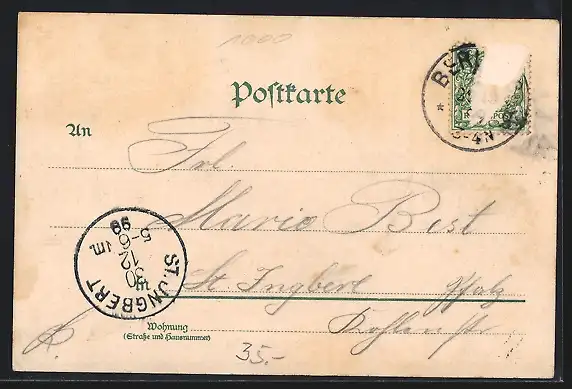 1000
Postkarte
An
Frl
Maria Best
in St. Ingbert Pfalz
Kohlenstr
Wohnung
(Straße und Hausnummer)
35.-
ST. INGBERT
30 12
5-6 Nm.
99